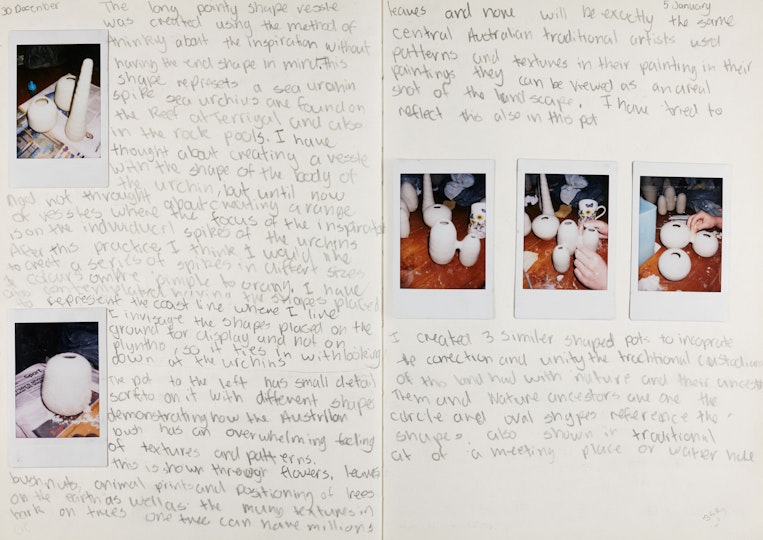 30 December
The long pointy shape vessle
was created using the method of
thinking about the inspiration without
having the end shape in mind. This
shape represets a sea urchin
spike sea urchins are found on
the Reef at Terrigal and also
in the rock pools. I have
thought about creating a vessle
with the shape of the body of
the urchin, but until now
had not throught about creating a range
of vessles where the focus of the inspiration
is on the individuerl spikes of the urchins
After this practice I think I would like
to creat a series of spikes in differt sizes
& colours ombre pimple to orang. I have
also contemplated having the shapes placed
to represent the coast line where I live
I invisage the shapes placed on the
ground for display and not on
plyntho, so it ties in with looking
down at the urchins
The pot to the left has small detail
scrfto on it with different shapes
demonstrating how the Austrllan
bush has an overwhelming feeling
of textures and patterns.
this is shown through flowers, leaves
bushnuts, animal prints and positioning of trees
on the earth as well as the many textures in
bark on trees one tree can have millions
5 January
leaves and none will be exactly the same
central Australian traditional artists used
patterns and textures in their painting in their
paintings they can be viewed as an areal
shot of the landscape. I have tried to
reflect this also in this pot
I created 3 similer shaped pots to incoprate
the conection and unity the trachtional custodians
of this land had with nature and their ancestors
Them and Nature ancestors are one the
circle and oval shypes reference the
shapes also shown in traditional
art of a meeting place or water hole